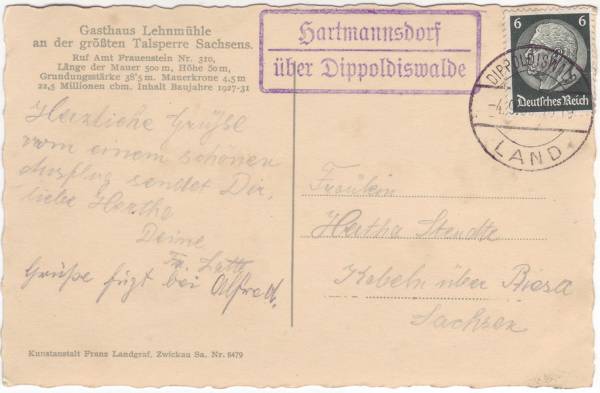 Gasthaus Lehnmühle
an der größten Talsperre Sachsens.
Ruf Amt Frauenstein Nr. 310,
Länge der Mauer 500 m, Höhe 50 m,
Grundungsstärke 38'5 m. Mauerkrone 4,5 m
22,5 Millionen cbm. Inhalt Baujahre 1927-31
Hartmannsdorf
über Dippoldiswalde
6 6
Deutsches Reich
DIPPOLDISWALDE
LAND
Herzliche Grüße
vom einem schönen
Ausflug sendet Dir,
liebe Hertha
Deine
Grüße fügt bei Alfred.
Fräulein
Hertha
über Riesa
Sachsen
Kunstanstalt Franz Landgraf, Zwickau Sa. Nr. 8479